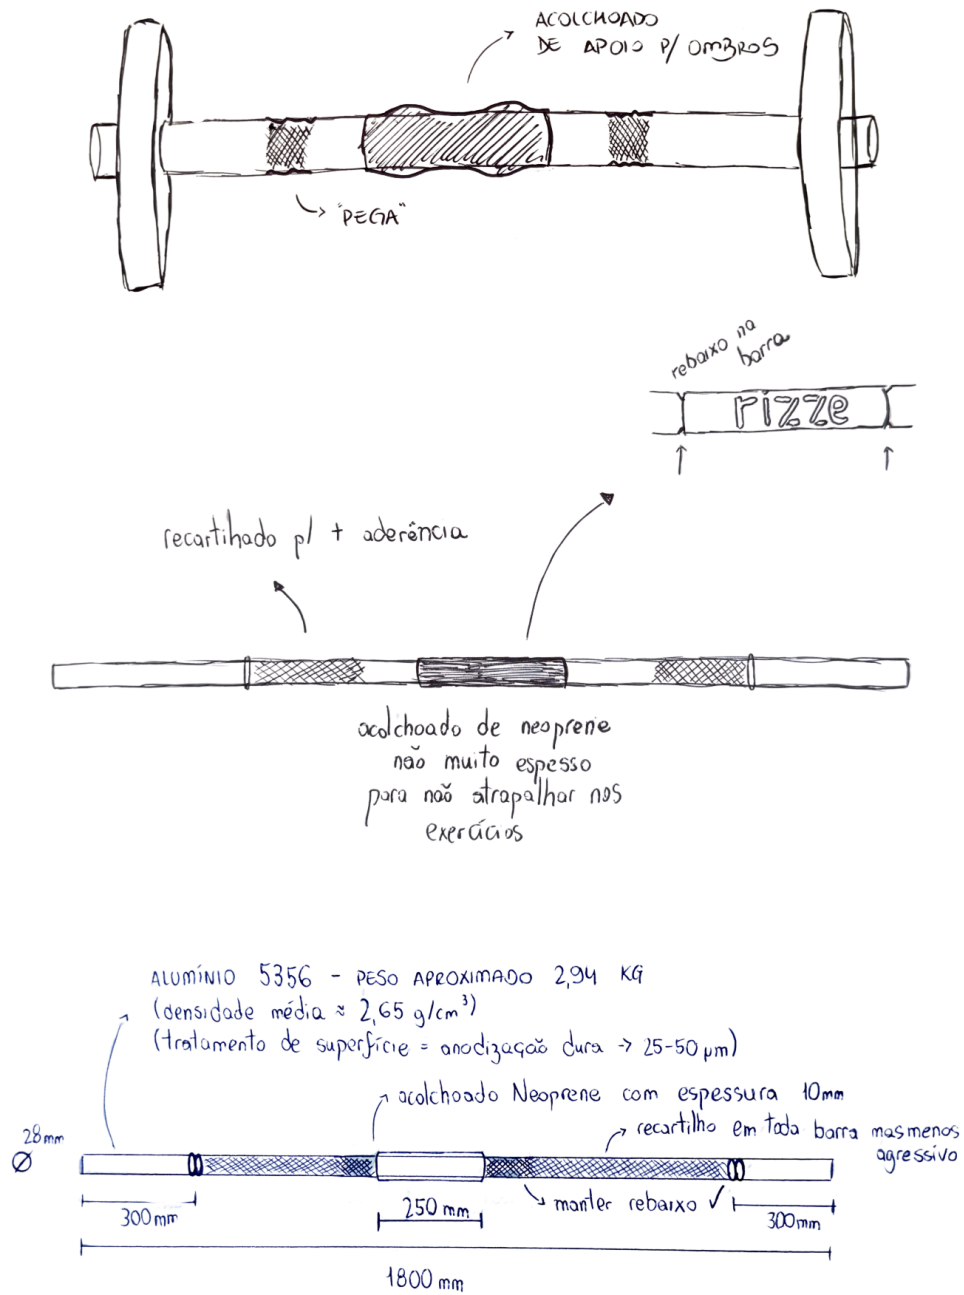 ACOLCHOADO
DE APOIO P/ OMBROS
"PEGA"
rebaixo na
barra
rizze
recartihado p/ + aderência
acolchoado de neoprene
não muito espesso
para não atrapalhar nos
exercícios
ALUMÍNIO 5356 - PESO APROXIMADO 2,94 KG
(densidade média ≈ 2,65 g/cm³)
(tratamento de superfície = anodização dura -> 25-50 μm)
acolchoado Neoprene com espessura 10mm
recartilho em toda barra mas menos
agressivo
28mm
Ø
manter rebaixo ✓
300mm
250 mm
300mm
1800 mm